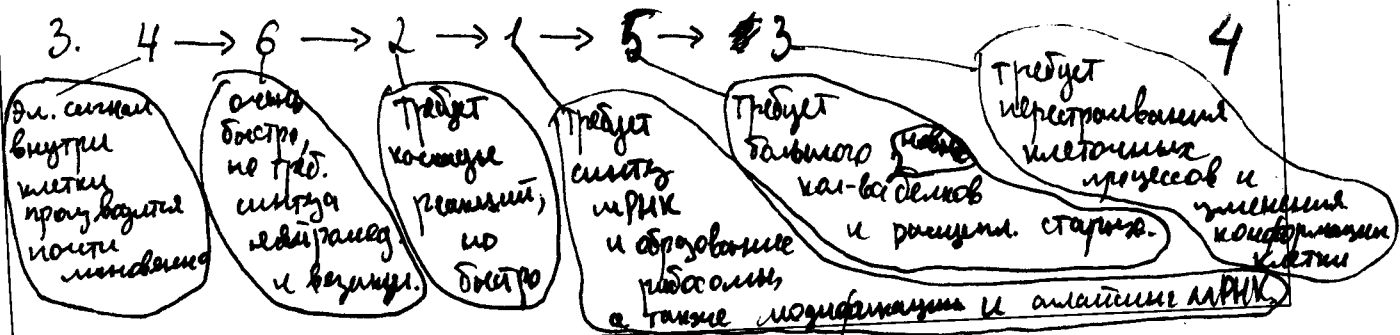 3. 4 → 6 → 2 → 1 → 5 → 3 4
эл. сигнал
внутри
клетки
производится
почти
мгновенно
очень
быстро,
не треб.
синтеза
нейромед.
и везикул.
требует
каскады
реакций,
но
быстро
требует
синтез
мРНК
и образование
рибосомы,
а также модификации и сплайсинг мРНК
требует
большого новых
кол-ва белков
и расщепл. старых.
требует
перестраивания
клеточных
процессов и
изменения
конформации
клетки